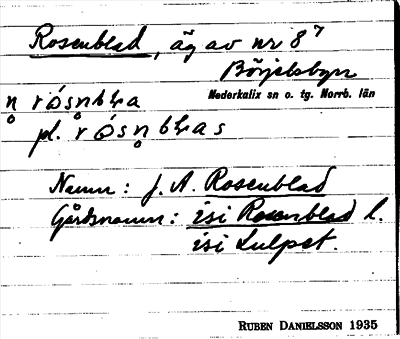 Rosenblad, äg av nr 8⁷
Börjelsbyn
Nederkalix sn o. tg. Norrb. län
pl.
Namn: J. A. Rosenblad
Gårdsnamn: isi Rosenblad l.
isi Lulpet.
RUBEN DANIELSSON 1935